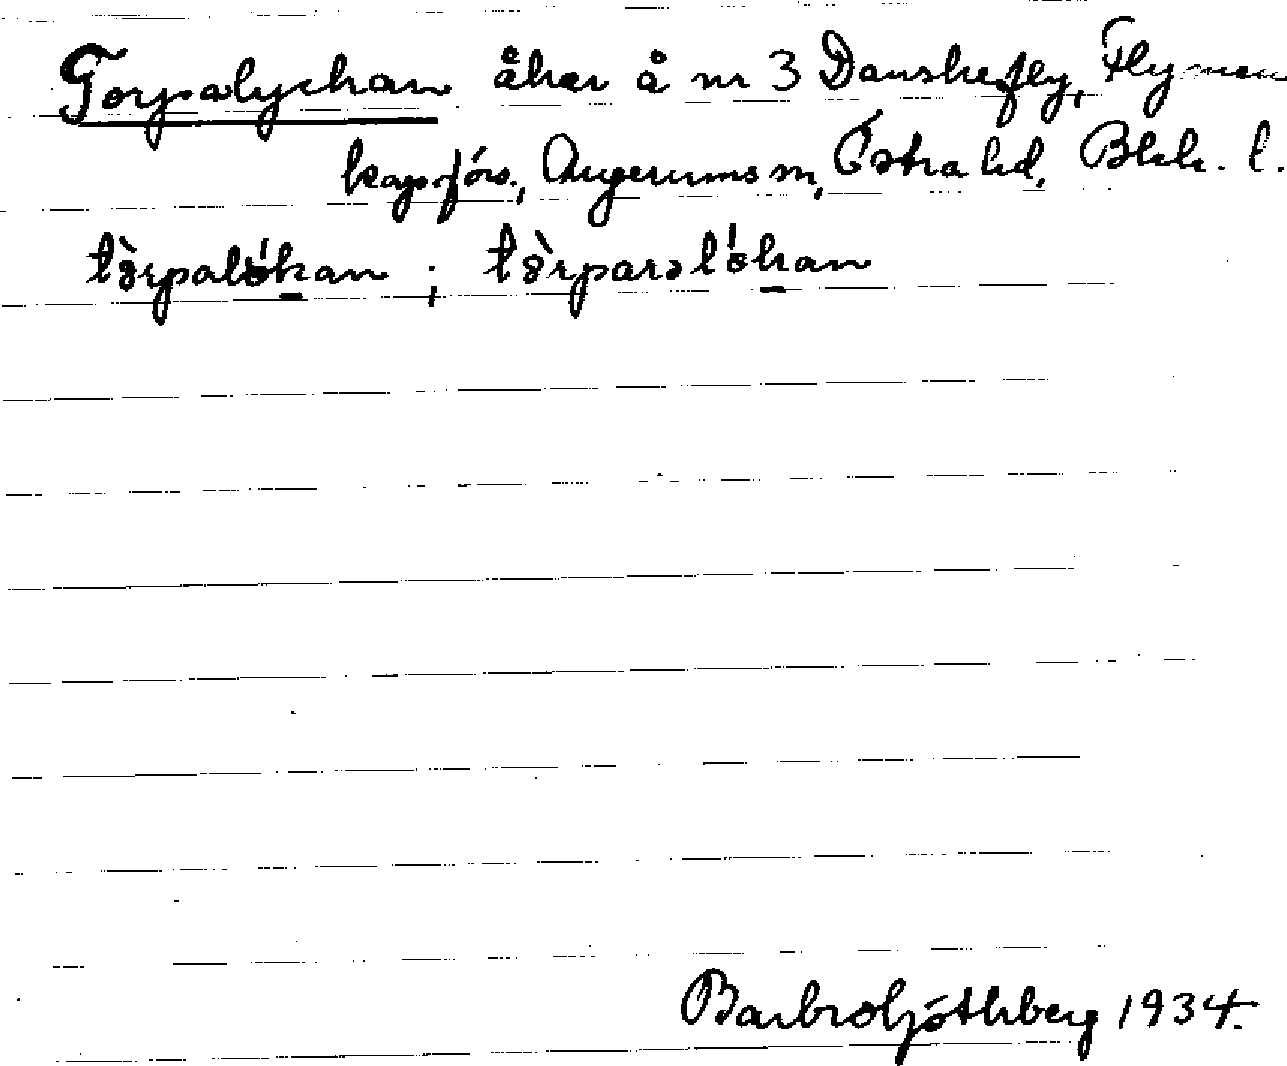 Torpalyckan åker å nr 3 Danskefly, Flymen
kapsförs., Augerums sn, Östra hd, Blek. l.
tòrpaló́kan ; tòrparəló́kan
Barbro Göthberg 1934.